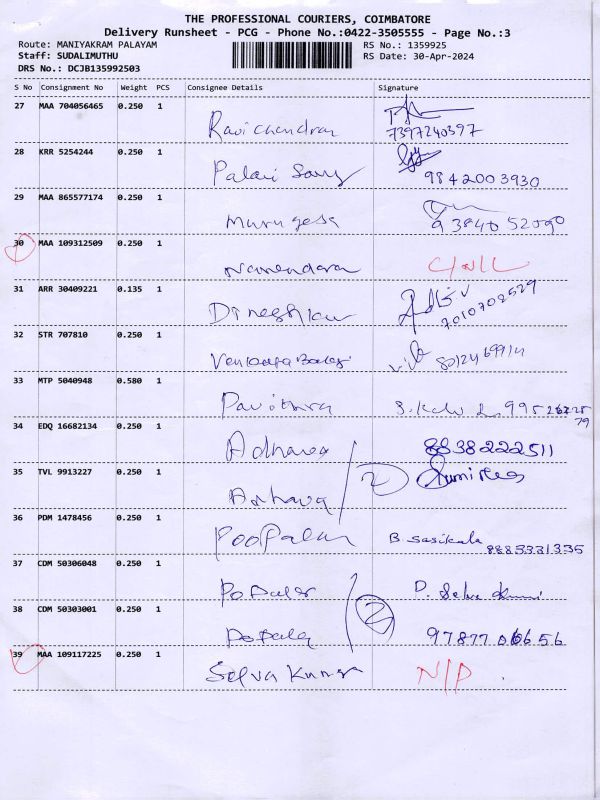 THE PROFESSIONAL COURIERS, COIMBATORE
Delivery Runsheet - PCG - Phone No.:0422-3505555 - Page No.:3
Route: MANIYAKRAM PALAYAM
Staff: SUDALIMUTHU
DRS No.: DCJB135992503
RS No.: 1359925
RS Date: 30-Apr-2024
S No Consignment No Weight PCS Consignee Details Signature
27 MAA 704056465 0.250 1
Ravichandran 7397240397
28 KRR 5254244 0.250 1
Palani Samy 9842003930
29 MAA 865577174 0.250 1
Murugesa
30 MAA 109312509 0.250 1
Narendara
31 ARR 30409221 0.135 1
Dineshkur 7010702529
32 STR 707810 0.250 1
33 MTP 5040948 0.580 1
Pavithra
34 EDQ 16682134 0.250 1
8838222511
35 TVL 9913227 0.250 1
2
36 PDM 1478456 0.250 1
PooPalan B. Sasikala
8885331335
37 CDM 50306048 0.250 1
38 CDM 50303001 0.250 1
2
39 MAA 109117225 0.250 1
Selva Kumar N/P